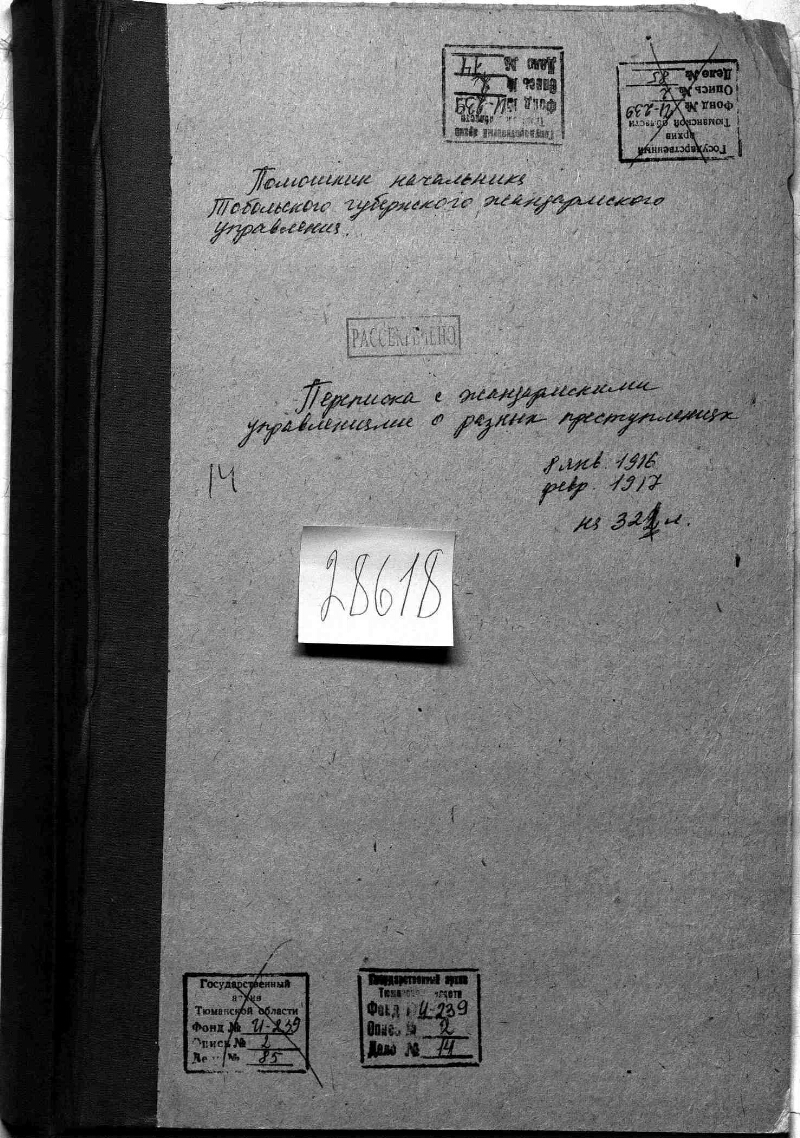 Государственный архив
Тюменской области
Фонд № И-239
Опись № 2
Дело № 14
Государственный
архив
Тюманской области
Фонд № И-239
Опись № 2
Дело № 85
Помошник начальника
Тобольского губернского жандармского
управления.
РАССЕКРЕЧЕНО
Переписка с жандармскими
управлениями о разных преступлениях
14
8 янв. 1916
февр. 1917
на 321 л.
28618
Государственный
архив
Тюманской области
Фонд № И-239
Опись № 2
Дело № 85
Государственный архив
Тюменской области
Фонд № И-239
Опись № 2
Дело № 14